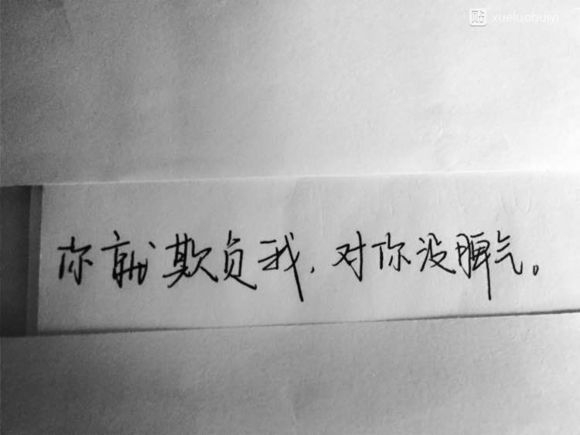 贴 xueluohuiyi
你就欺负我，对你没脾气。